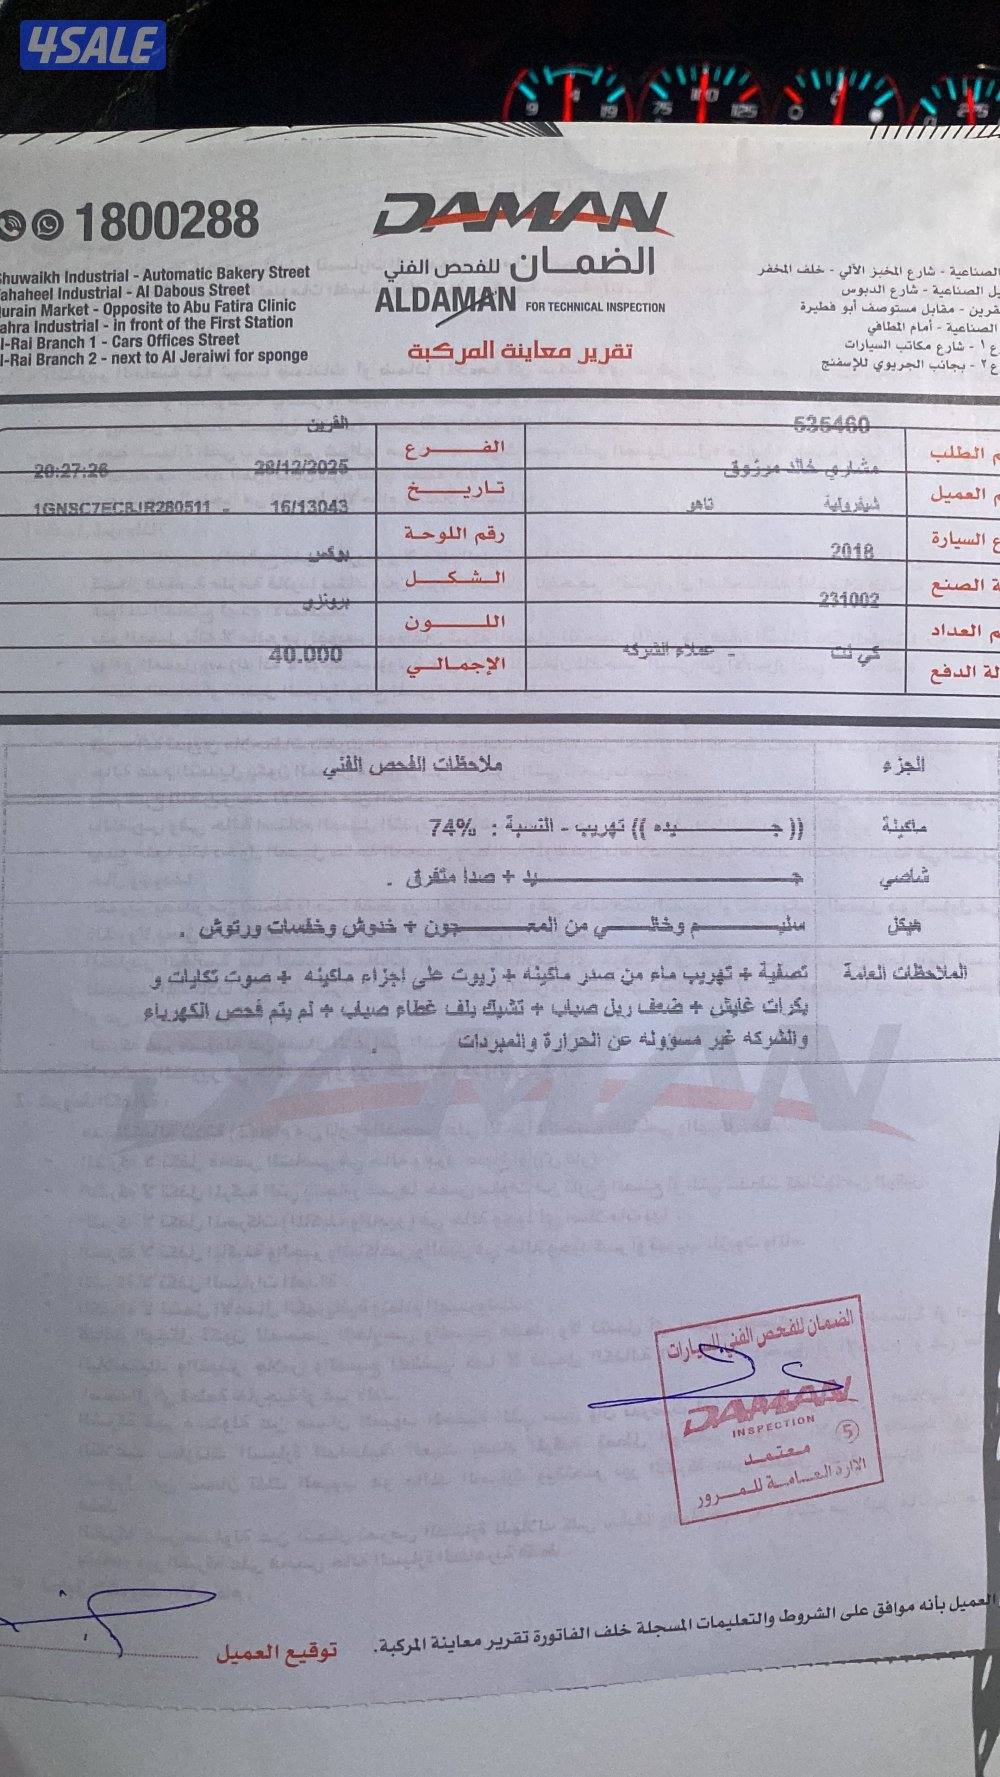 4SALE
9 19 75 100 125 0
1800288
DAMAN
الضمان للفحص الفني
ALDAMAN FOR TECHNICAL INSPECTION
تقرير معاينة المركبة
Shuwaikh Industrial - Automatic Bakery Street
Fahaheel Industrial - Al Dabous Street
Qurain Market - Opposite to Abu Fatira Clinic
Jahra Industrial - in front of the First Station
Al-Rai Branch 1 - Cars Offices Street
Al-Rai Branch 2 - next to Al Jeraiwi for sponge
الصناعية - شارع المخبز الآلي - خلف المخفر
الصناعية - شارع الدبوس
- مقابل مستوصف أبو فطيرة
الصناعية - أمام المطافي
١ - شارع مكاتب السيارات
٢ - بجانب الجريوي للإسفنج
الطلب 535460 الفرع القرين
العميل مشاري خالد مرزوق تاريخ 28/12/2025 20:27:26
السيارة شيفرولية تاهو رقم اللوحة 16/13043 - 1GNSC7EC8JR280511
الصنع 2018 الشكل بوكس
العداد 231002 اللون برونزي
الدفع كي نت - عملاء الشركة الإجمالي 40.000
الجزء ملاحظات الفحص الفني
ماكينة (( جيده )) تهريب - النسبة : 74%
شاصي جيد + صدا متفرق .
هيكل سليم وخالي من المعجون + خدوش وخفسات ورتوش .
الملاحظات العامة تصفية + تهريب ماء من صدر ماكينه + زيوت على اجزاء ماكينه + صوت تكايات و
بكرات قايش + ضعف ريل صباب + تشيك بلف غطاء صباب + لم يتم فحص الكهرباء
والشركه غير مسؤوله عن الحرارة والمبردات .
DAMAN
الضمان للفحص الفني للسيارات
DAMAN
INSPECTION
5
معتمد
الادارة العامة للمرور
العميل بأنه موافق على الشروط والتعليمات المسجلة خلف الفاتورة تقرير معاينة المركبة.
توقيع العميل